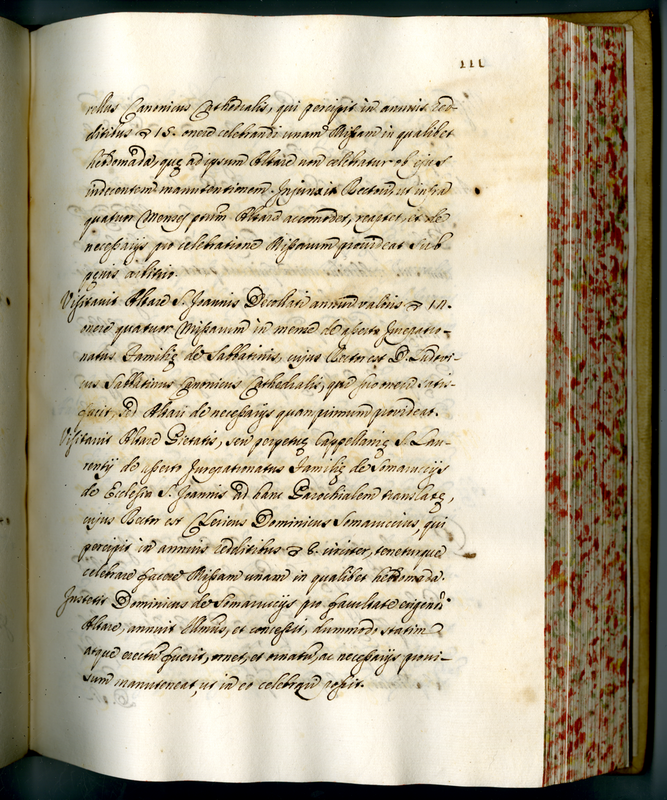 111
rellus Canonicus Cathedralis, qui percipit in annuis red-
ditibus 15. onere celebrandi unam Missam in qualibet
hebdomada, quę ad ipsum Altare non celebratur ob ejus
indecentem manutentionem. Injunxit Rectori, ut infra
quatuor Menses prm̃ Altare accomodet, reaptet, et de
necessarijs pro celebratione Missarum provideat sub
pęnis arbitrio.
Visitavit Altare S. Joannis Decollati annui valoris 14.
onere quatuor Missarum in mense de asserto Jurepatro-
natus Familię de Sabbatinis, cujus Rector est D. Ludovi-
cus Sabbatinus Canonicus Cathedralis, qui pro oneri satis-
facit, sed Altari de necessarijs quamprimum provideat.
Visitavit Altare Pietatis, seu perpetuę Cappellanię S. Lau-
rentij de asserto Jurepatronatus Familię de Somaruccijs
de Ecclesia S. Joannis ad hanc Parochialem translatę,
cujus Rector est Clericus Dominicus Somaruccius, qui
percipit in annuis redditibus 8. circiter, teneturque
celebrare facere Missam unam in qualibet hebdomada.
Institit Dominicus de Somaruccijs pro facultate erigendi
Altare, annuit Illmus, et concessit, dummodo statim
atque erectum fuerit, ornet, et ornatum, ac necessarijs provi-
sum manuteneat, ut in eo celebrari possit.